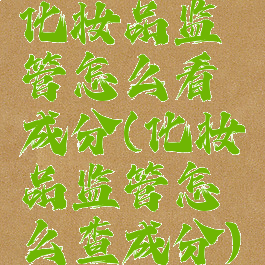 化妆品监
管怎么看
成分(化妆
品监管怎
么查成分)